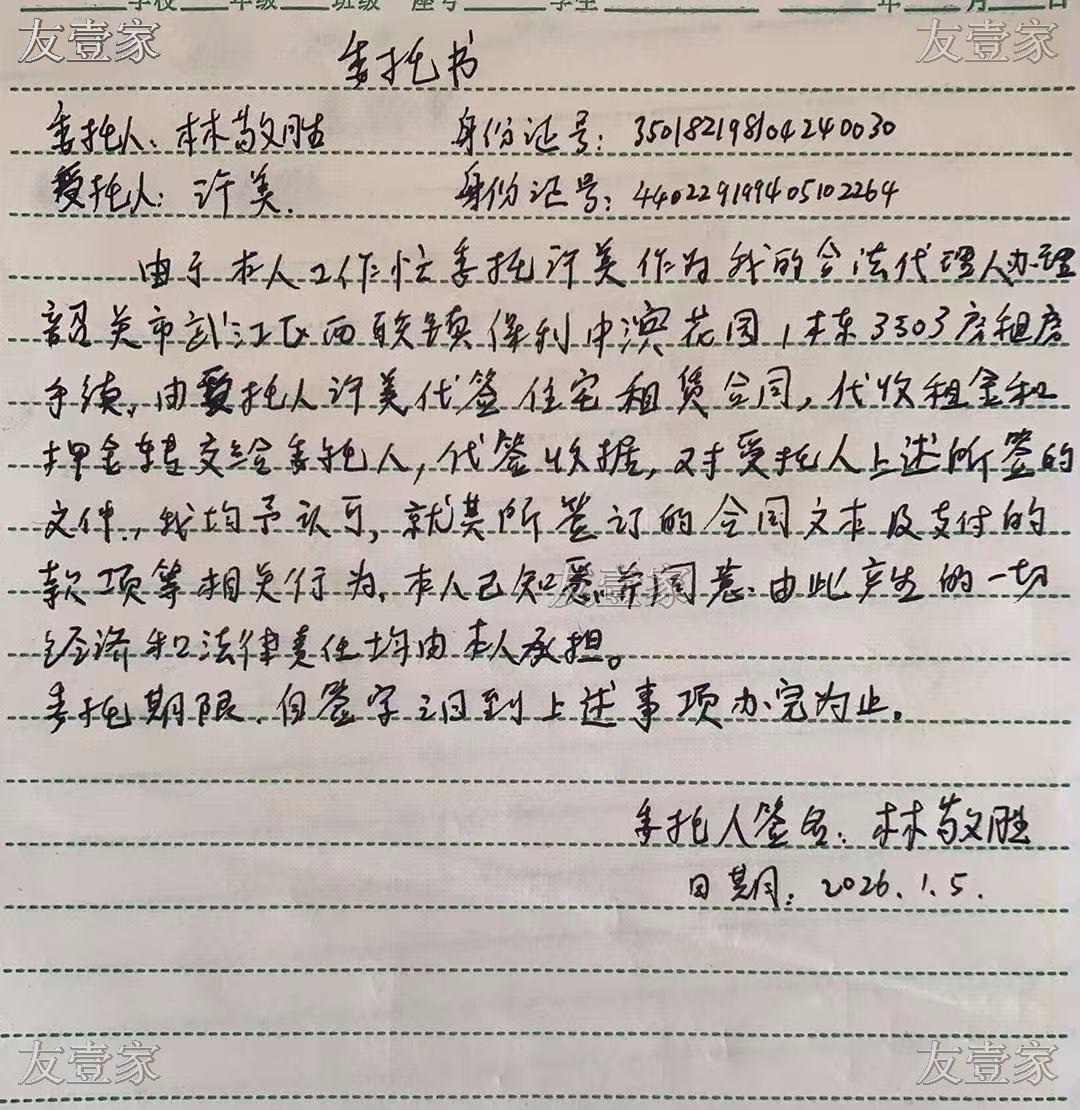 学校 年级 班级 座号 学生 年 月 日
友壹家 友壹家
委托书
委托人：林敬胜 身份证号：350182198104240030
受托人：许美. 身份证号：440229199405102264
由于本人工作忙委托许美作为我的合法代理人办理
韶关市武江区西联镇保利中滨花园，1栋3303房租房
手续，由受托人许美代签住宅租赁合同，代收租金和
押金转交给委托人，代签收据，对受托人上述所签的
文件，我均予认可，就其所签订的合同文本及支付的
款项等相关行为，本人已知悉并同意.由此产生的一切
友壹家
经济和法律责任均由本人承担。
委托期限.自签字之日到上述事项办完为止.
委托人签名：林敬胜
日期：2026.1.5.
友壹家 友壹家